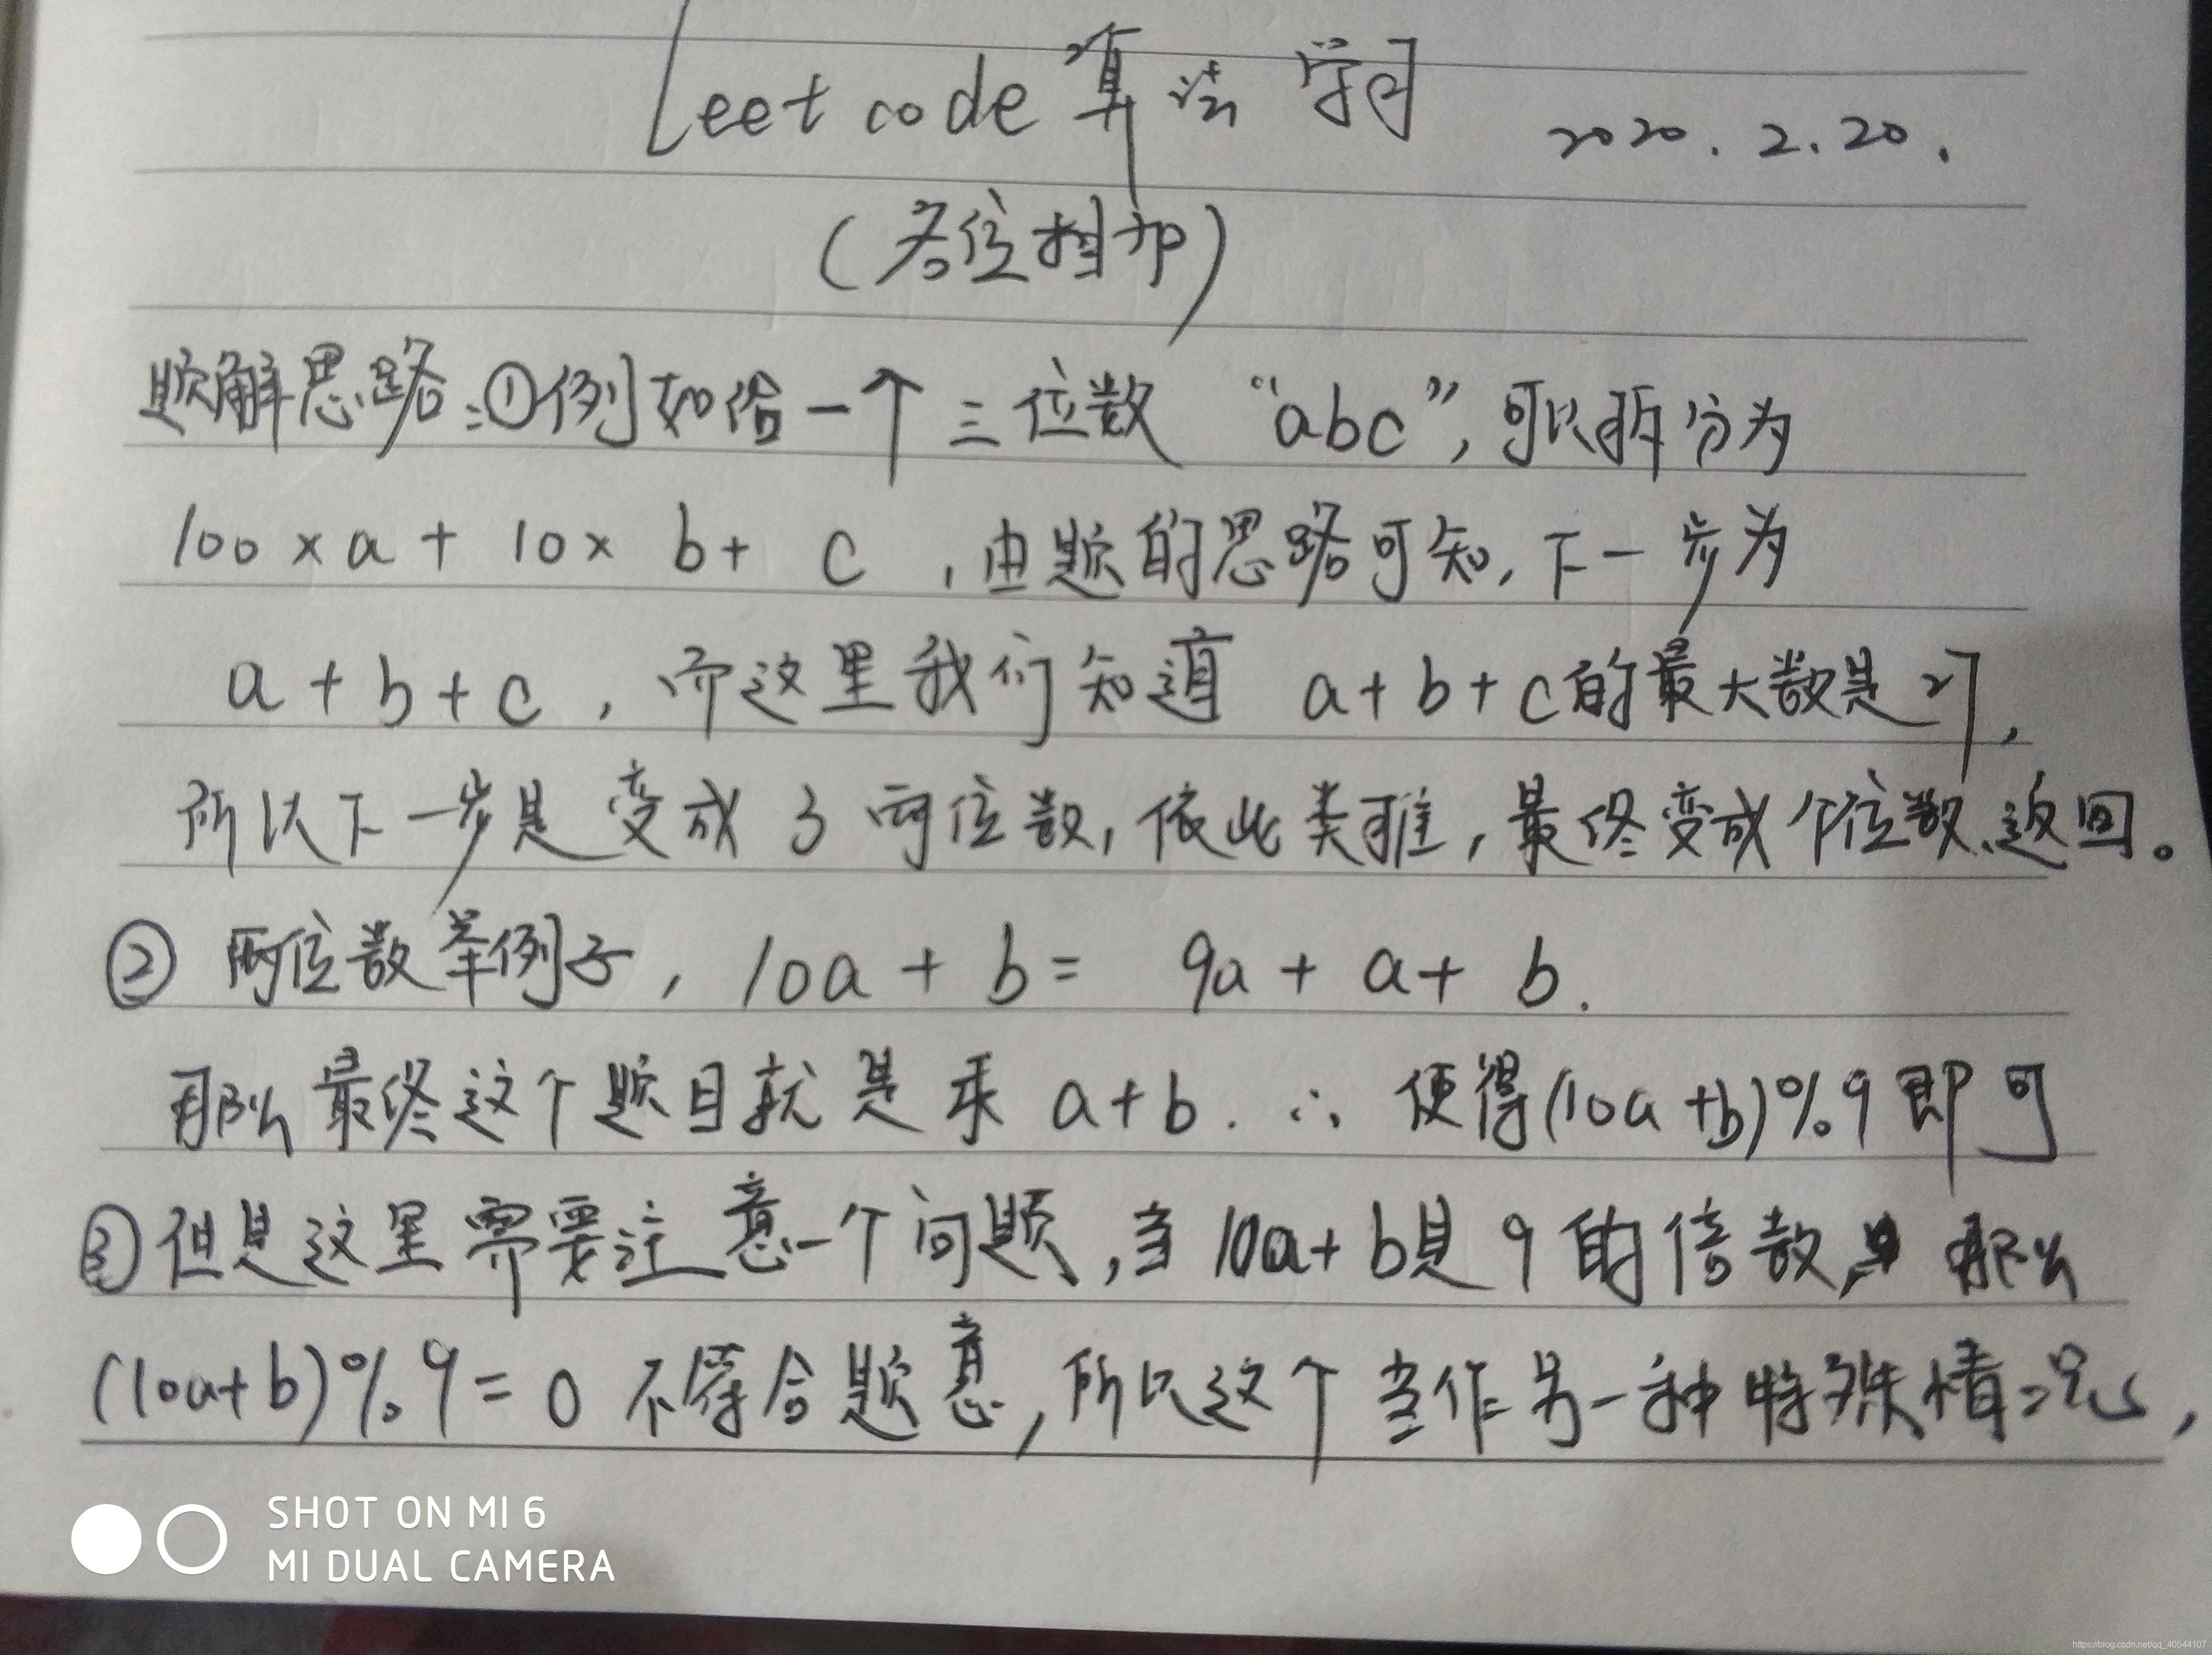 Leetcode算法学习 2020.2.20.
(各位相加)
题解思路:①例如给一个三位数“abc”,可以拆分为
100×a+10×b+c,由题的思路可知,下一步为
a+b+c,而这里我们知道a+b+c的最大数是27,
所以下一步是变成了两位数,依此类推,最终变成个位数返回。
②两位数举例子,10a+b=9a+a+b.
那么最终这个题目就是求a+b.∴使得(10a+b)%9即可
③但是这里需要注意一个问题,当10a+b是9的倍数,那么
(10a+b)%9=0不符合题意,所以这个当作另一种特殊情况,
SHOT ON MI 6
MI DUAL CAMERA
https://blog.csdn.net/qq_40544107